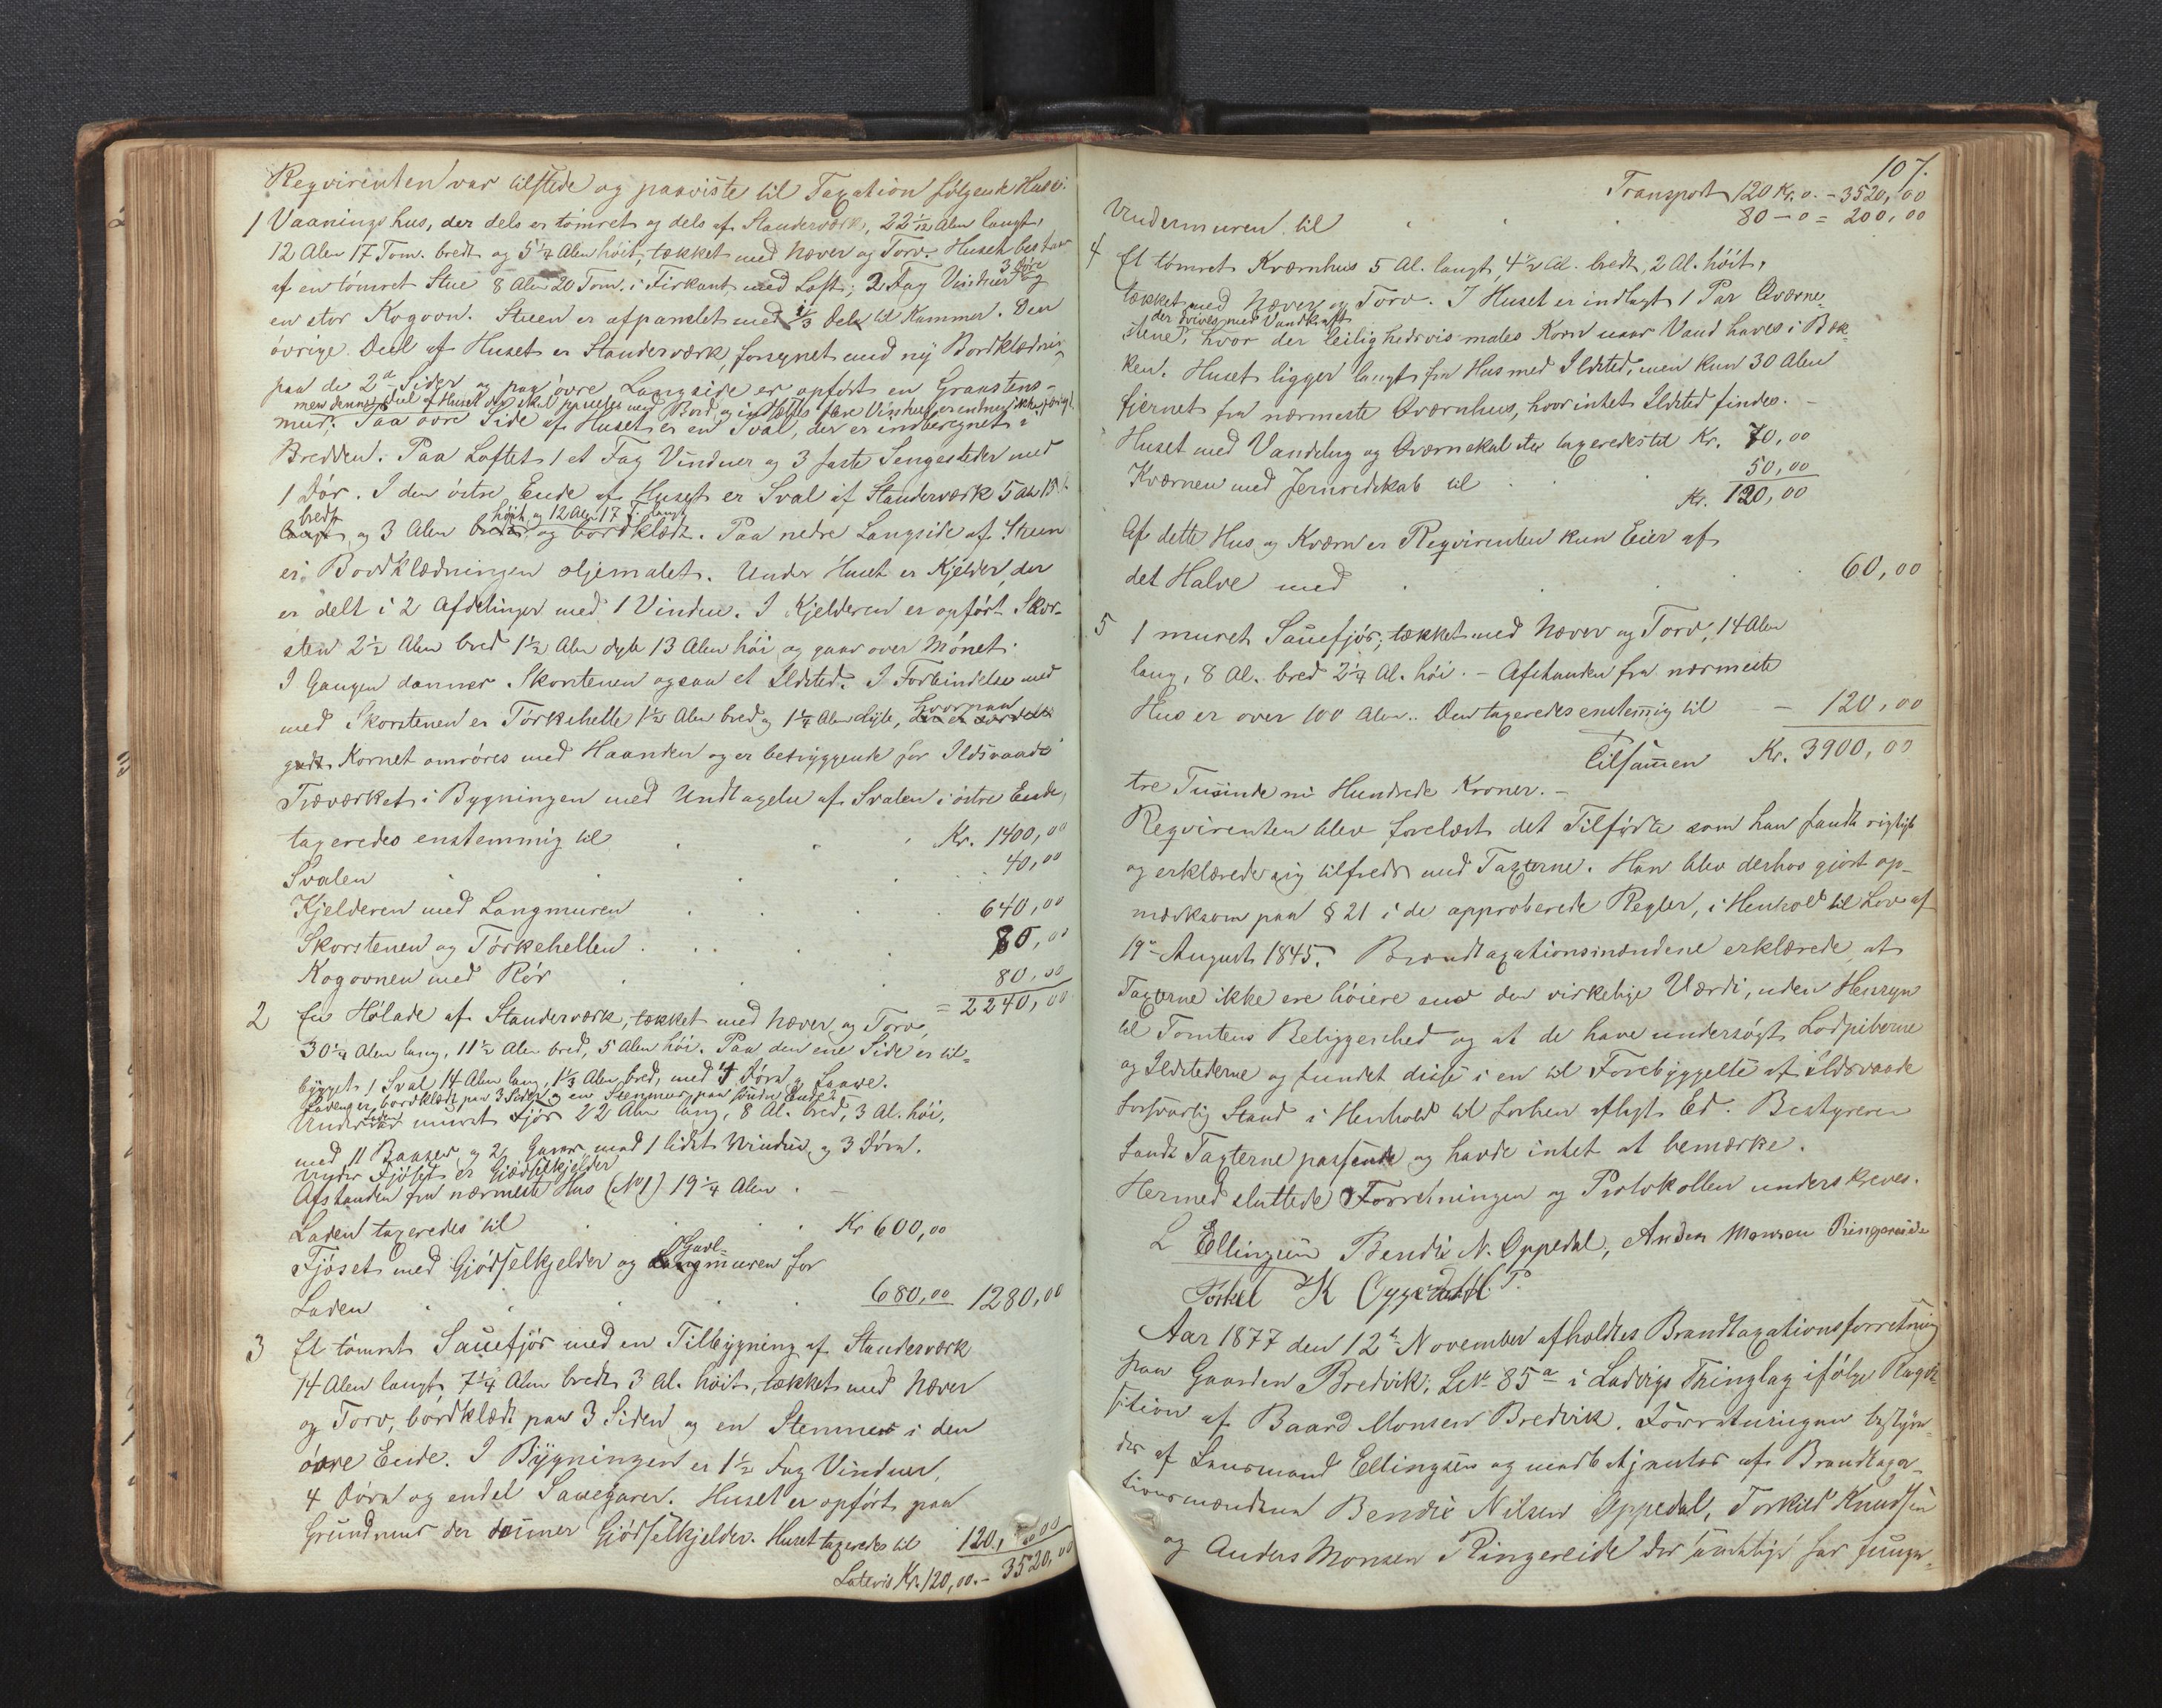 Reqvirenten var tilstede og paaviste til Taxation følgende Huse:
1 Vaaningshus, der dels er tømret og dels af Standerværk, 22 1/12 Alen langt,
12 Alen 17 Tom. bredt og 5 1/4 Alen høit, tækket med Næver og Torv. Huset bestaar
3 Døre
af en tømret Stue 8 Alen 20 Tom. i Firkant med Loft; 2 Fag Vinduer og
en stor Kogovn. Stuen er afpanelet med 1/3 Del til Kammer. Den
øvrige Deel af Huset er Standerværk, forsynet med ny Bordklædning
paa de 2de Sider og paa øvre Langside er opført en Graastens-
men denne Deel af Huset der skal med Bord og indsættes flere Vinduer er endnu ikke færdigt
mur; Paa øvre Side af Huset er en Sval, der er indberegnet i
Bredden. Paa Loftet 1 et Fag Vinduer og 3 faste Sengesteder med
1 Dør. I den østre Ende af Huset er Sval af Standerværk 5 Al. 15 T.
bredt høit og 12 Alen 17 T. langt
langt og 3 Alen bredt og bordklædt. Paa nedre Langside af Stuen
er Bordklædningen oljemalet. Under Huset er Kjelder, der
er delt i 2 Afdelinger med 1 Vindue. I Kjelderen er opført Skor-
sten 2 1/2 Alen bred 1 1/2 Alen dyb 13 Alen høi og gaar over Mønet.
I Gangen danner Skorstenen ogsaa et Ildsted. I Forbindelse med
hvorpaa
med Skorstenen er Tørkehelle 1 1/2 Alen bred og 1 1/4 Alen dyb, den er
godt Kornet omrøres med Haanden og er betryggende for Ildsvaade
Træværket i Bygningen med Undtagelse af Svalen i østre Ende,
taxeredes enstemmig til . . . Kr. 1400,00
Svalen . . . . 40,00
Kjelderen med Langmuren . . . 640,00
Skorstenen og Tørkehellen . . . 80,00
Kogovnen med Rør . . . 80,00
= 2240,00
2 En Hølade af Standerværk, tækket med Næver og Torv,
30 1/4 Alen lang, 11 1/2 Alen bred, 5 Alen høi. Paa den ene Side er til-
bygget 1 Sval 14 Alen lang, 1 1/3 Alen bred, med 4 Døre og Laave.
Laden er bordklædt paa 3 Sider og en Stenmur paa Ende.
Under Laden muret Fjøs 22 Alen lang, 8 Al. bred, 3 Al. høi,
med 11 Baaser og 2 Garer med 1 lidet Vindue og 3 Døre.
Under Fjøset er Gjødselkjelder
Afstanden fra nærmeste Hus (No 1) 19 1/4 Alen. –
Laden taxeredes til . . . Kr 600,00
Gavl-
Fjøset med Gjødselkjelder og Langmuren for
Laden . . . . 680,00 1280,00
3 Et tømret Sauefjøs med en Tilbygning af Standerværk
14 Alen langt, 7 1/4 Alen bredt 3 Al. høit, tækket med Næver
og Torv, bordklædt paa 3 Sider og en Stenmur i den
øvre Ende. I Bygningen er 1 1/2 Fag Vinduer,
4 Døre og endel Sauegarer. Huset er opført paa
Grundmur der danner Gjødselkjelder. Huset taxeredes til 120,00
Lateris Kr. 120,00.– 3520,00
107.
Transport 120 Kr. 0. – 3520,00
Undermuren til . . . 80 – 0 = 200,00
4 Et tømret Kværnhus 5 Al. langt, 4 1/2 Al. bredt, 2 Al. høit,
tækket med Næver og Torv. I Huset er indlagt 1 Par Qværne-
der drives med Vandkraft
stene, hvor der leilighedsvis males Korn naar Vand haves i Bæk-
ken. Huset ligger langt fra Hus med Ildsted, men kun 30 Alen
fjernet fra nærmeste Qværnhus, hvor intet Ildsted findes. –
Huset med Vandelug og Qværnekal etc taxeredes til Kr. 70,00
Kværnen med Jernredskab til . . 50,00
Kr. 120,00
Af dette Hus og Kværn er Reqvirenten kun Eier af
det Halve med . . . . 60,00
5 1 muret Sauefjøs; tækket med Næver og Torv, 14 Alen
lang, 8 Al. bred 2 1/4 Al. høi. – Afstanden fra nærmeste
Hus er over 100 Alen. Den taxeredes enstemig til – 120,00
Tilsamen Kr. 3900,00
tre Tusinde ni Hundrede Kroner. –
Reqvirenten blev forelæst det Tilførte som han fandt rigtigt
og erklærede sig tilfreds med Taxterne. Han blev derhos gjort op-
mærksom paa § 21 i de approberede Regler, i Henhold til Lov af
19de August 1845. Brandtaxationsmændene erklærede, at
Taxterne ikke ere høiere end den virkelige Værdi, uden Hensyn
til Tomtens Beliggenhed og at de have undersøgt Lodpiberne
og Ildstederne og fundet disse i en til Forebyggelse af Ildsvaade
forsvarlig Stand i Henhold til forhen aflagt Ed. Bestyreren
fandt Taxterne passende og havde intet at bemærke.
Hermed sluttede Forretningen og Protokollen underskreves.
L Ellingsen Bendix N. Oppedal, Anders Monsen Ringereide
Torkel K Oppedal m.P.
Aar 1877 den 12te November afholdtes Brandtaxationsforretning
paa Gaarden Bredvik, L.No 85a i Ladvigs Thinglag ifølge Reqvi-
sition af Baard Monsen Bredvik. Forretningen bestyre-
des af Lensmand Ellingsen og medbetjentes af Brandtaxa-
tionsmændene Bendix Nilsen Oppedal, Torkild Knudsen
og Anders Monsen Ringereide der samtlige før funger-